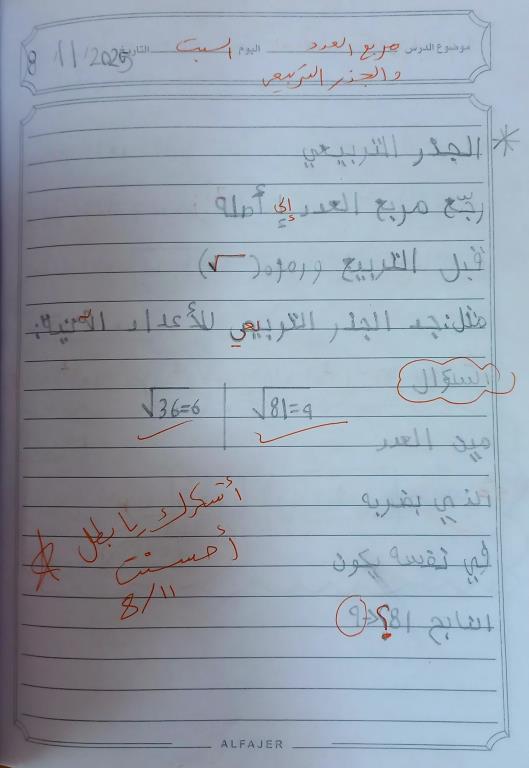 موضوع الدرس مربع العدد اليوم السبت التاريخ 8/11/2025
والجذر التربيعي
* الجذر التربيعي
رجّع مربع العدد إلى أصله
قبل التربيع ورمزه (√)
مثل: جد الجذر التربيعي للأعداد الآتية:
السؤال
√81=9 | √36=6
مين العدد
الذي بضربه
في نفسه يكون
الناتج 81؟ → 9
أشكرك يا بطل
أحسنت
8/11
ALFAJER